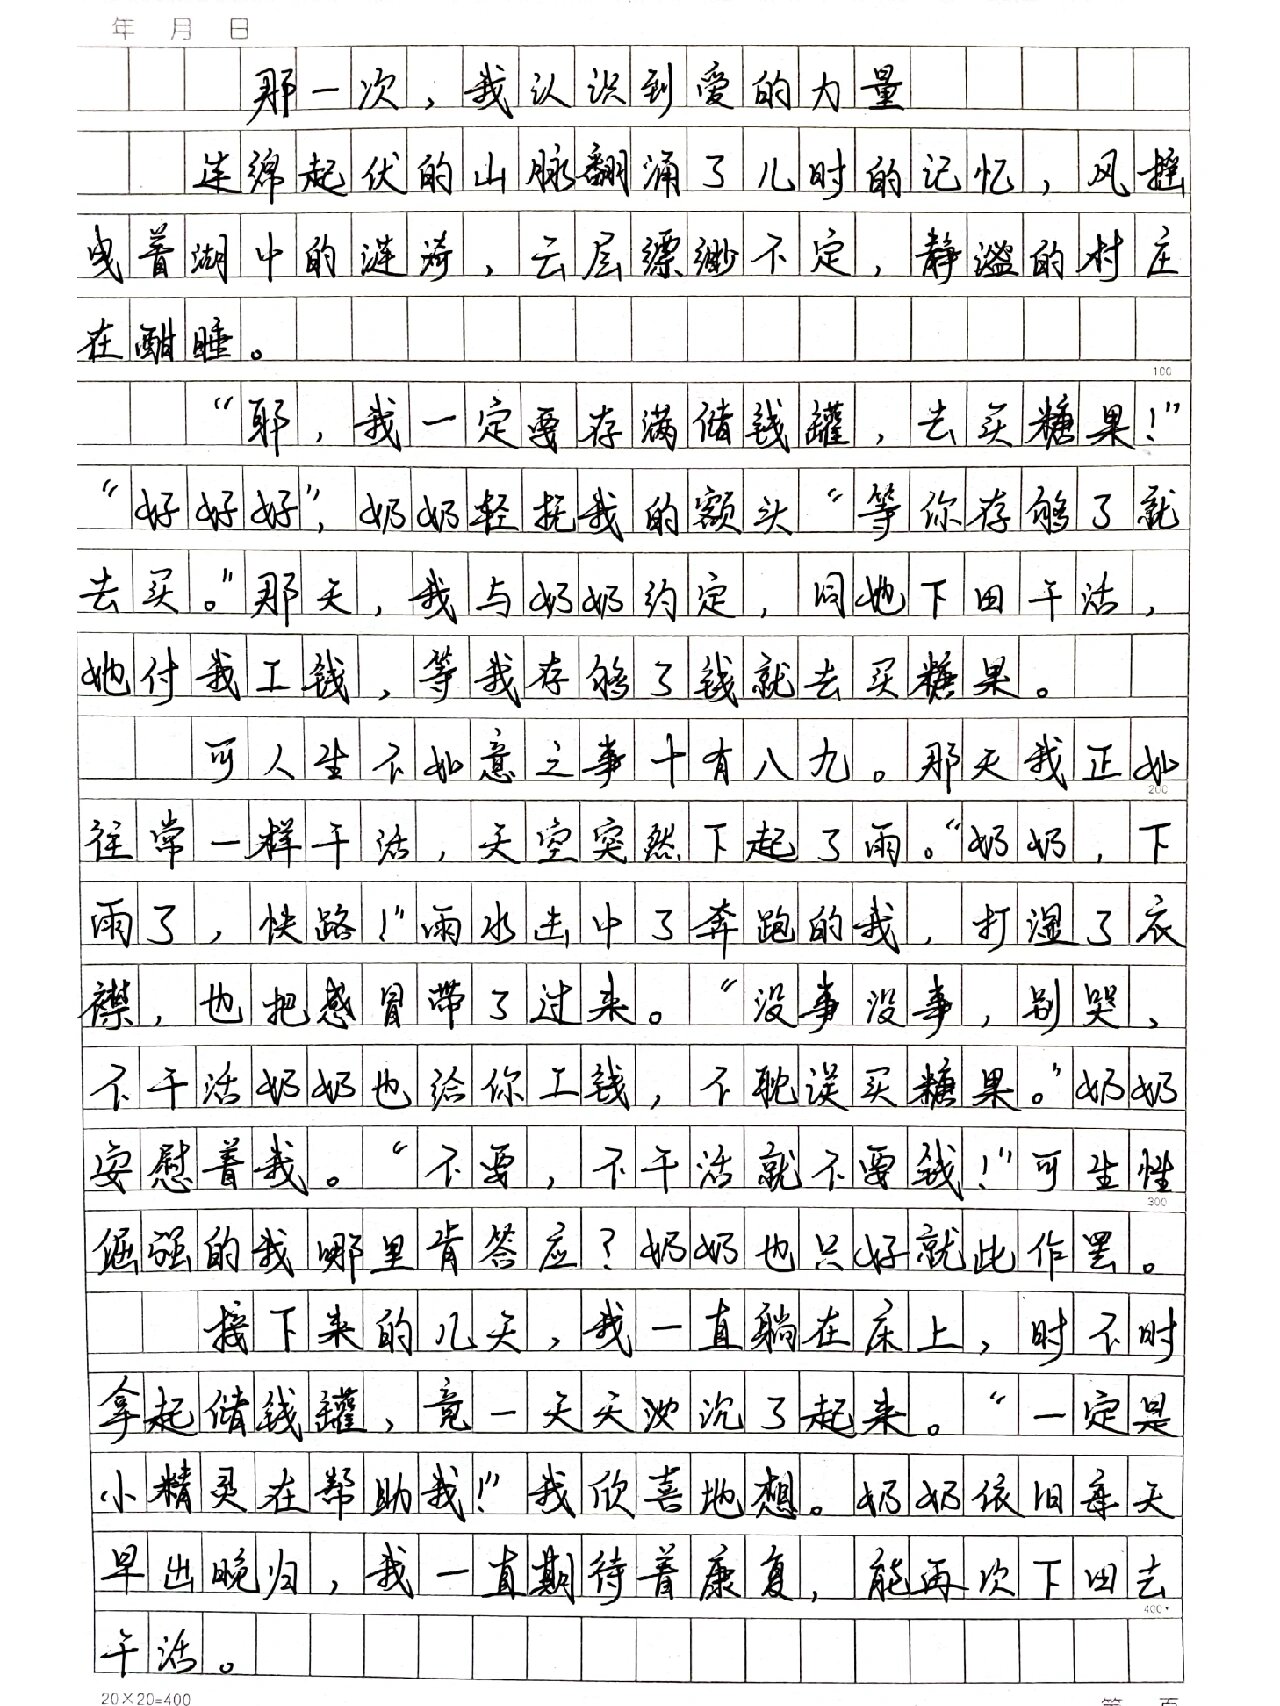 年 月 日
那一次，我认识到爱的力量
连绵起伏的山脉翻涌了儿时的记忆，风摇
曳着湖中的涟漪，云层缥缈不定，静谧的村庄
在酣睡。
100
“耶，我一定要存满储钱罐，去买糖果！”
“好好好”，奶奶轻抚我的额头“等你存够了就
去买。”那天，我与奶奶约定，同她下田干活，
她付我工钱，等我存够了钱就去买糖果。
可人生不如意之事十有八九。那天我正如
200
往常一样干活，天空突然下起了雨。“奶奶，下
雨了，快路！”雨水击中了奔跑的我，打湿了衣
襟，也把感冒带了过来。“没事没事，别哭，
不干活奶奶也给你工钱，不耽误买糖果。”奶奶
安慰着我。“不要，不干活就不要钱！”可生性
300
倔强的我哪里肯答应？奶奶也只好就此作罢。
接下来的几天，我一直躺在床上，时不时
拿起储钱罐，竟一天天沉了起来。“一定是
小精灵在帮助我！”我欣喜地想。奶奶依旧每天
早出晚归，我一直期待着康复，能再次下田去
400
干活。
20×20=400
第 页